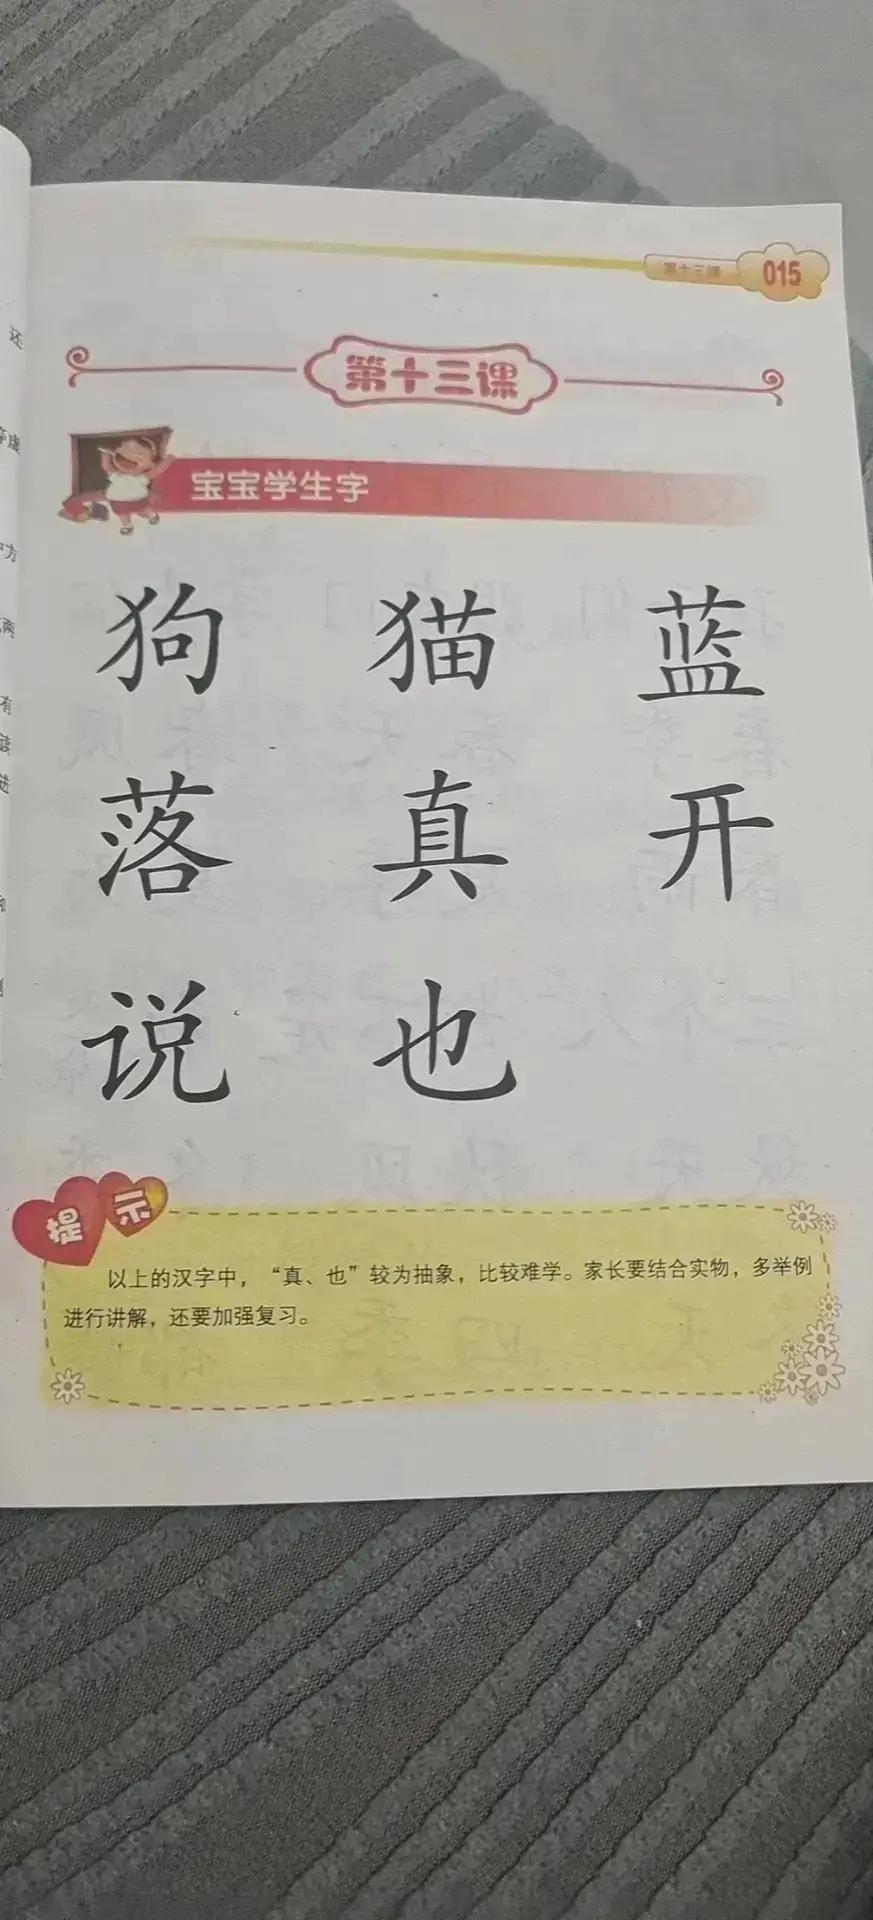 第十三课 015
第十三课
宝宝学生字
狗 猫 蓝
落 真 开
说 也
提示
以上的汉字中，“真、也”较为抽象，比较难学。家长要结合实物，多举例
进行讲解，还要加强复习。
还
方
两
有
读
进